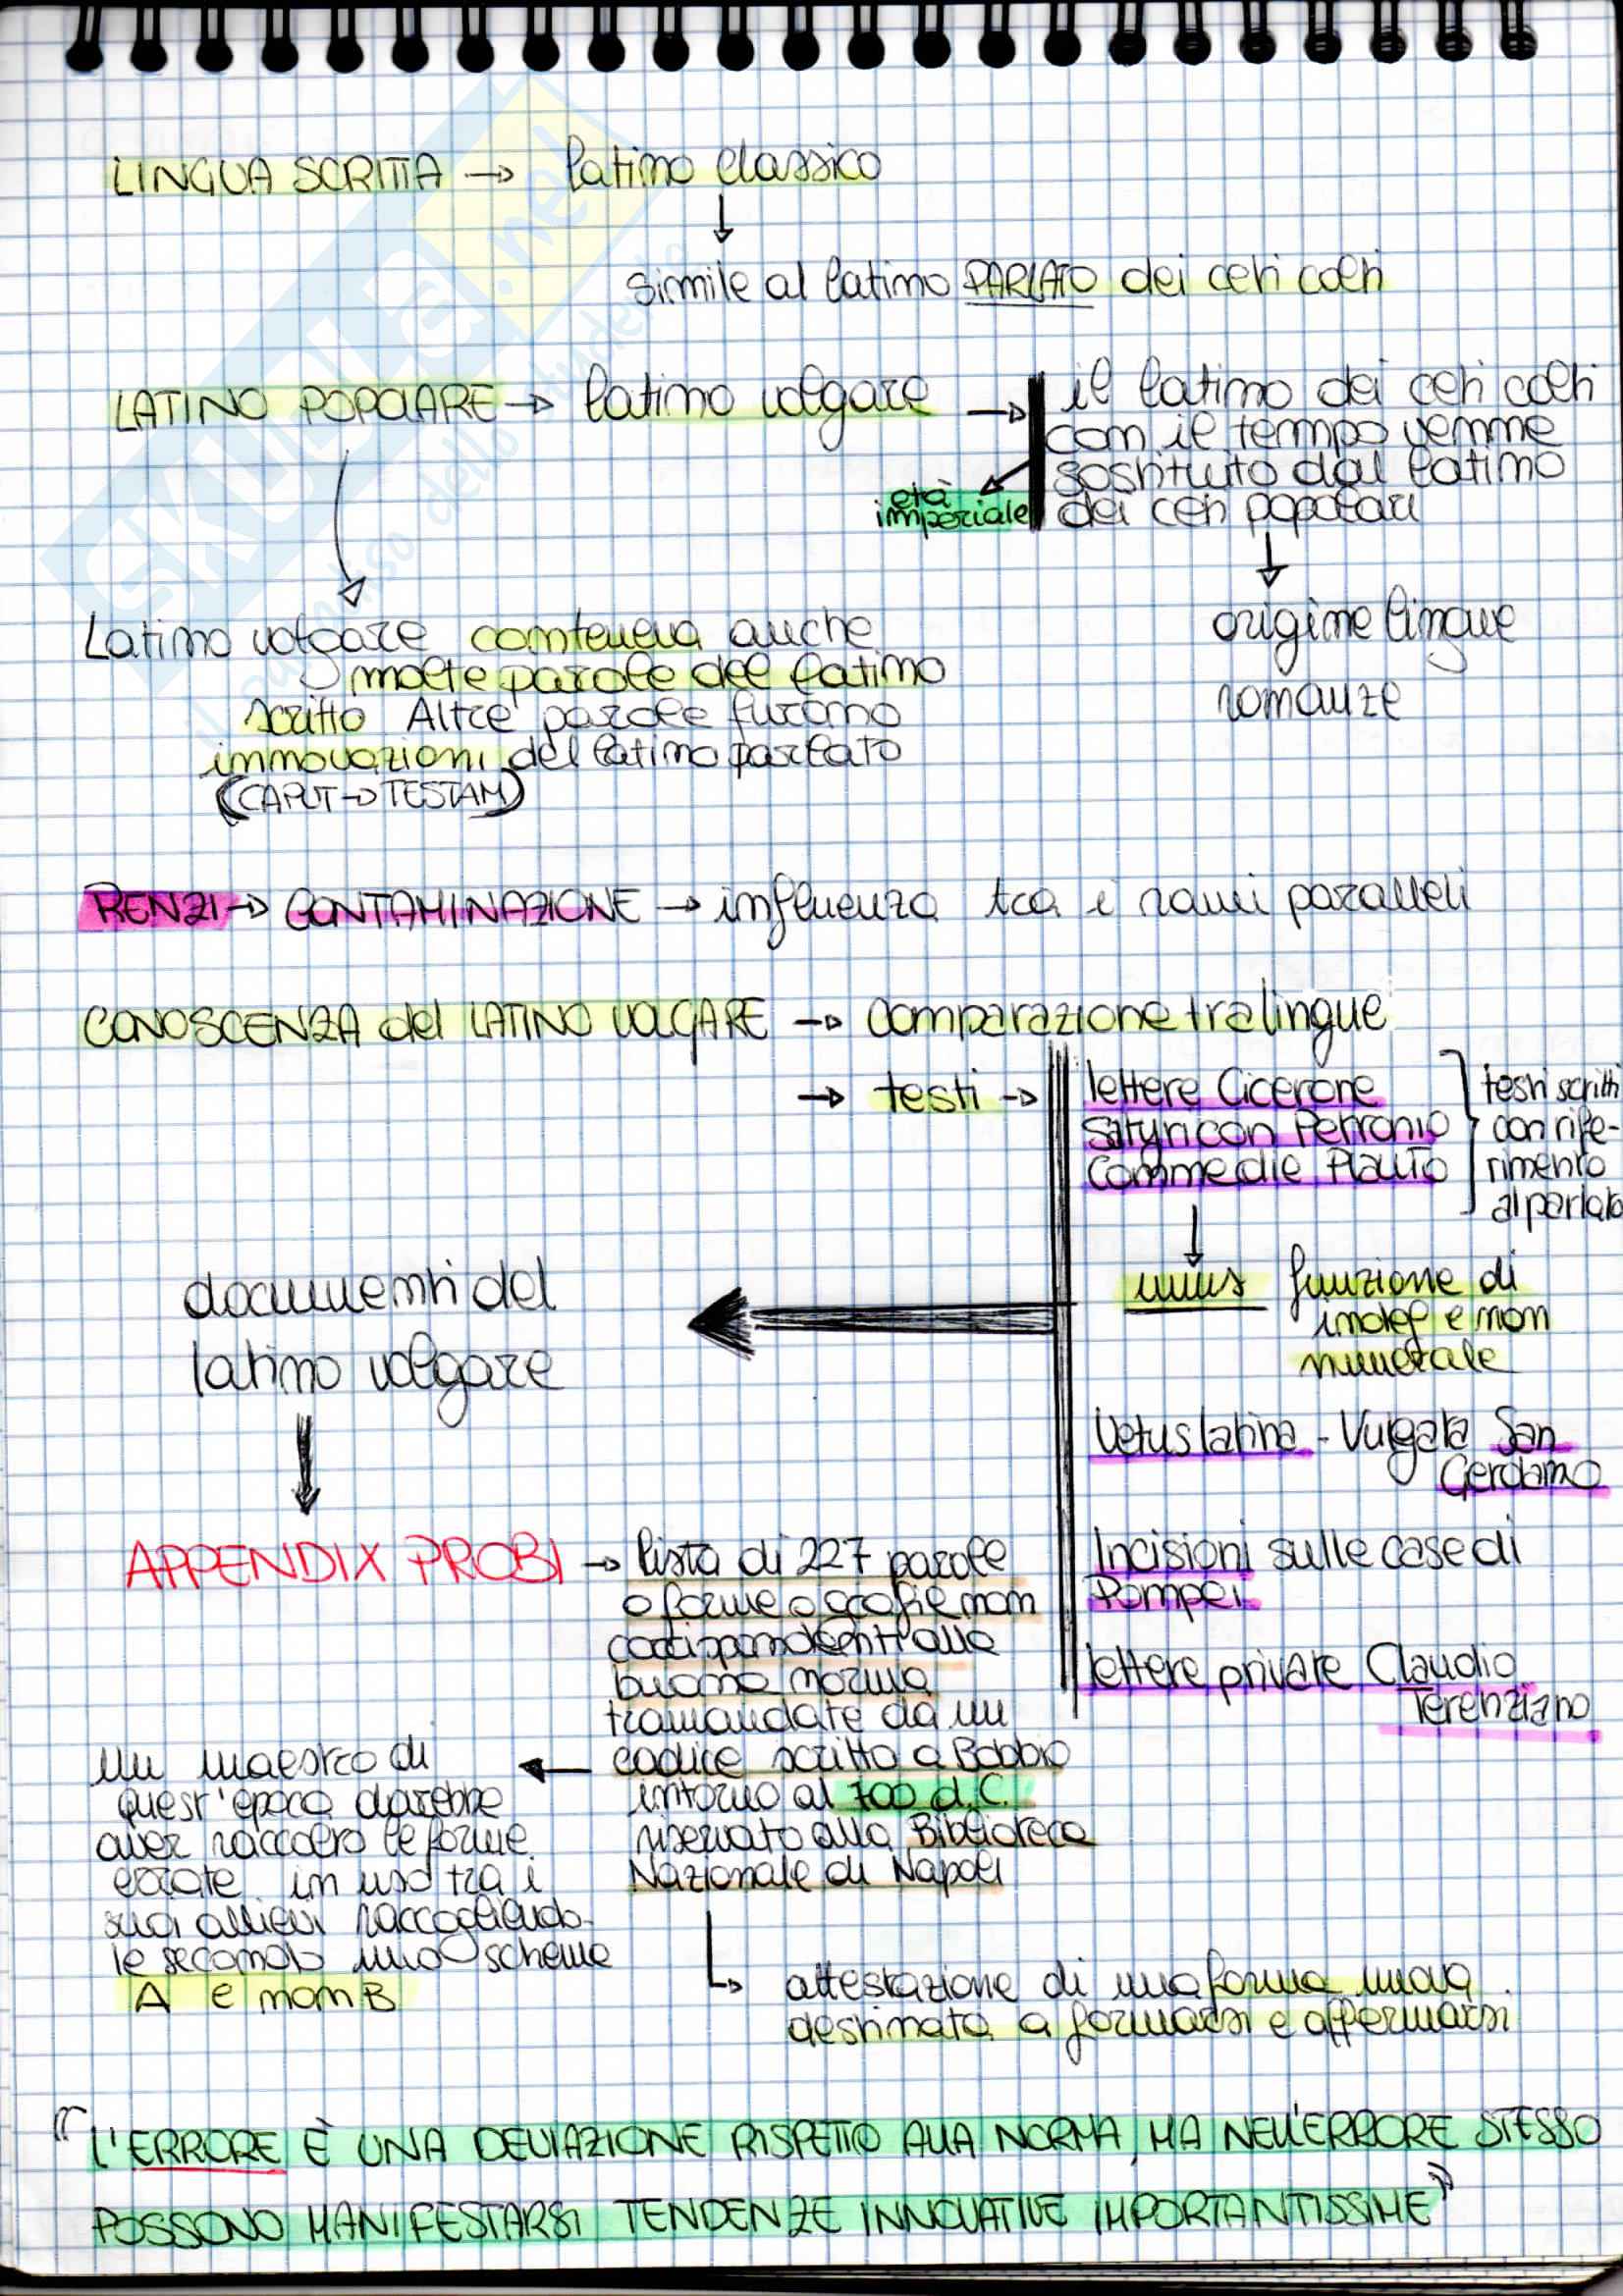 LINGUA SCRITTA → latino classico
↓
simile al latino PARLATO dei ceti colti
LATINO POPOLARE → latino volgare →
il latino dei ceti colti
con il tempo venne
sostituito dal latino
dei ceti popolari
età
imperiale
↓
origine lingue
romanze
Latino volgare conteneva anche
molte parole del latino
scritto Altre parole furono
innovazioni del latino parlato
(CAPUT → TESTAM)
RENZI → CONTAMINAZIONE → influenza tra i rami paralleli
CONOSCENZA del LATINO VOLGARE → comparazione tra lingue
→ testi →
lettere Cicerone
Satyricon Petronio
Commedie Plauto
testi scritti
con rife-
rimento
al parlato
↓
unus funzione di
indef e non
numerale
Vetus latina - Vulgata San
Gerolamo
Incisioni sulle case di
Pompei
lettere private Claudio
Terenziano
documenti del
latino volgare
APPENDIX PROBI → lista di 227 parole
o forme o grafie non
corrispondenti alla
buona norma
tramandate da un
codice scritto a Bobbio
intorno al 700 d.C.
riservato alla Biblioteca
Nazionale di Napoli
un maestro di
quest'epoca darebbe
aver raccolto le forme
errate in uso tra i
suoi allievi raccogliendo-
le secondo uno schema
A e non B
attestazione di una forma nuova
destinata a formarsi e affermarsi
"L'ERRORE È UNA DEVIAZIONE RISPETTO ALLA NORMA, MA NELL'ERRORE STESSO
POSSONO MANIFESTARSI TENDENZE INNOVATIVE IMPORTANTISSIME"
SKUOLA.net
il paradiso dello studente